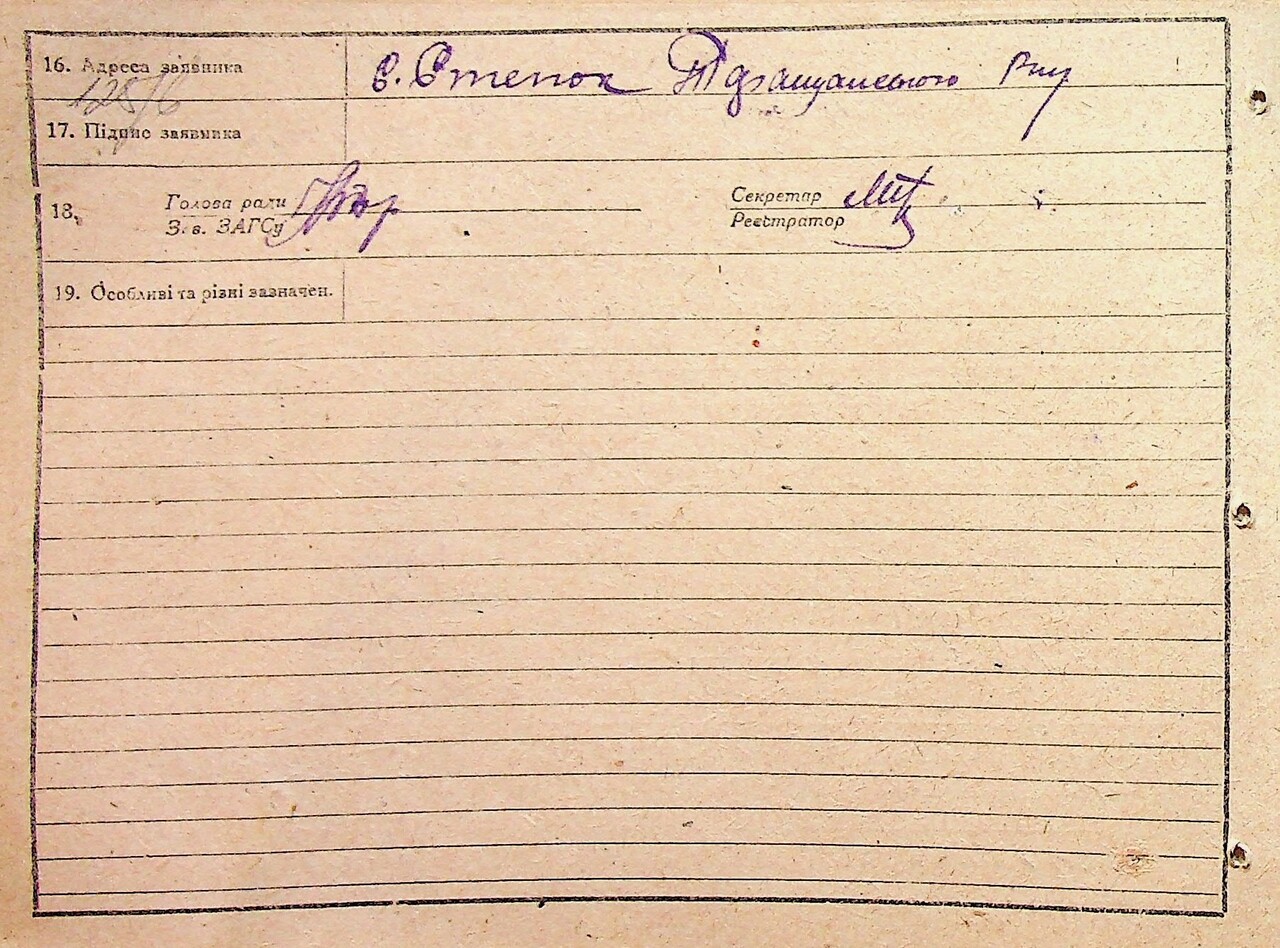 16. Адреса заявника с. Степок
128/6
17. Підпис заявника
18. Голова ради Секретар
З. в. ЗАГСу Реєстратор
19. Особливі та різні зазначен.